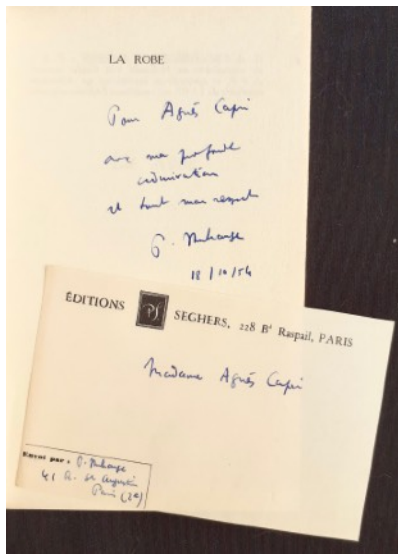 LA ROBE
Pour Agnès Capri
avec ma profonde
admiration
et tout mon respect
18/10/54
ÉDITIONS PS SEGHERS, 228 Bd Raspail, PARIS
Madame Agnès Capri
Envoi par : P.
41 R. St Augustin
Paris (2e)